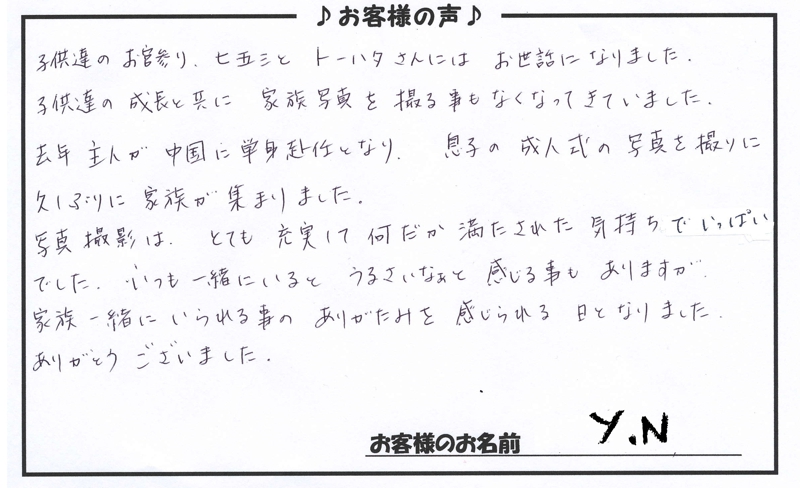 ♪お客様の声♪
子供達の お宮参り、七五三と トーハタさんには お世話になりました。
子供達の 成長と共に 家族写真を 撮る事も なくなってきていました。
去年 主人が 中国に 単身赴任となり、 息子の 成人式の 写真を 撮りに
久しぶりに 家族が 集まりました。
写真撮影は、 とても 充実して 何だか 満たされた 気持ちで いっぱい
でした。 いつも 一緒にいると うるさいなぁと 感じる事も ありますが、
家族 一緒に いられる事の ありがたみを 感じられる 日と なりました。
ありがとう ございました。
お客様のお名前 Y.N